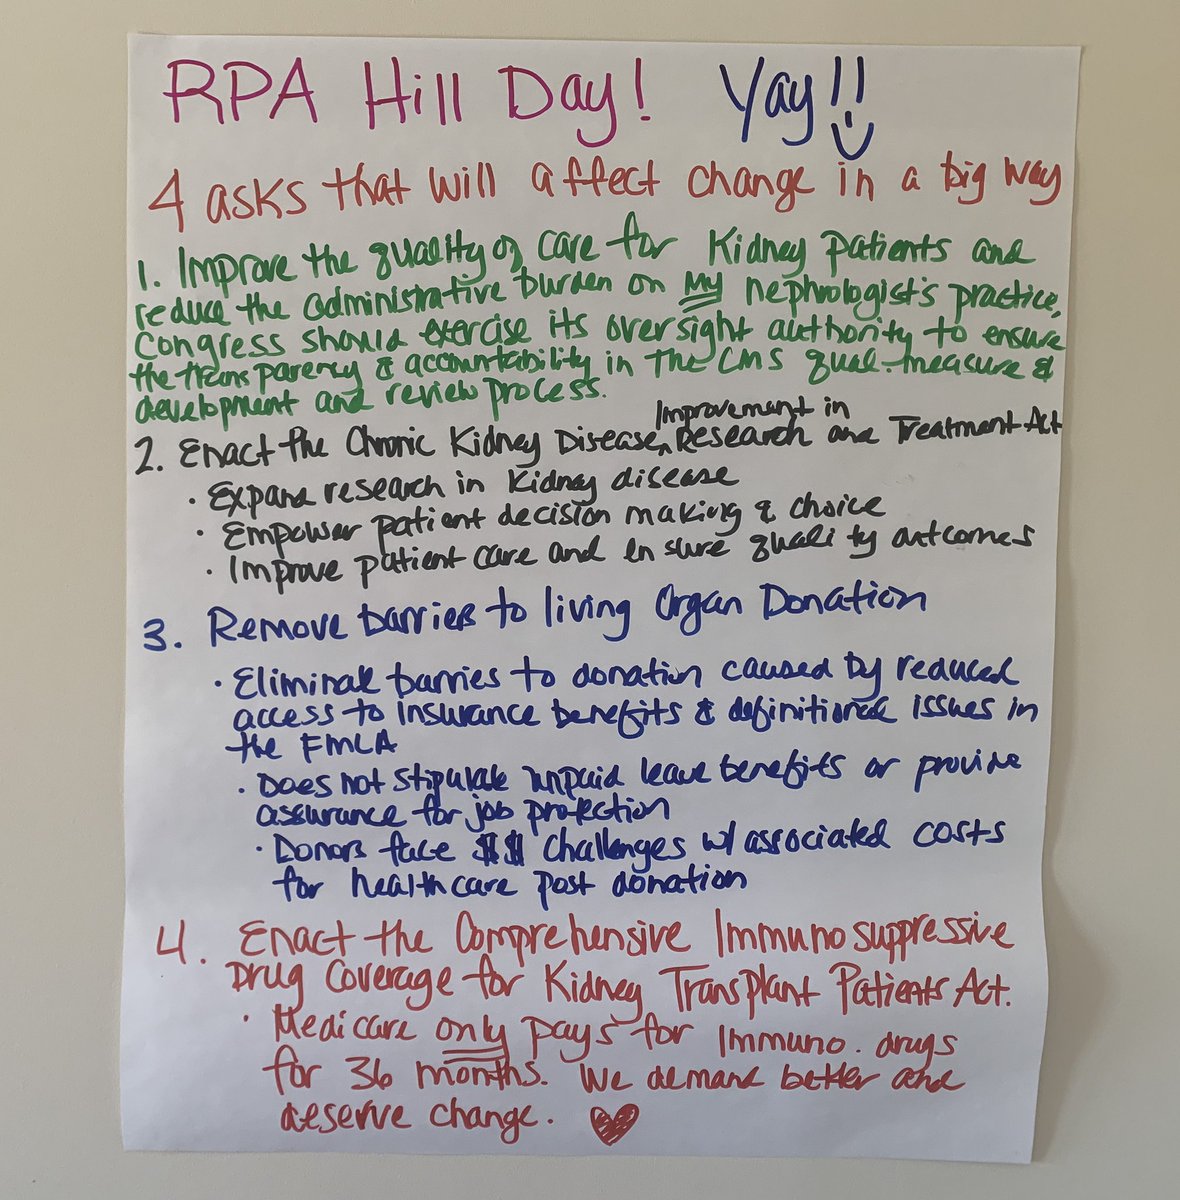 RPA Hill Day! Yay!!
4 asks that will affect change in a big way
1. Improve the quality of care for Kidney patients and
reduce the administrative burden on my nephrologist's practice,
Congress should exercise its oversight authority to ensure
the transparency & accountability in the CMS qual. measure &
development and review process.
Improvement in
2. Enact the Chronic Kidney Disease, Research and Treatment Act
· Expand research in Kidney disease
· Empower patient decision making & choice
· Improve patient care and ensure quality outcomes
3. Remove barriers to living Organ Donation
· Eliminate barries to donation caused by reduced
access to insurance benefits & definitional issues in
the FMLA
· Does not stipulate unpaid leave benefits or provide
assurance for job protection
· Donors face $$$ challenges w/ associated costs
for healthcare post donation
4. Enact the Comprehensive Immunosuppressive
Drug Coverage for Kidney Transplant Patients Act.
· Medicare only pays for Immuno. drugs
for 36 months. We demand better and
deserve change.